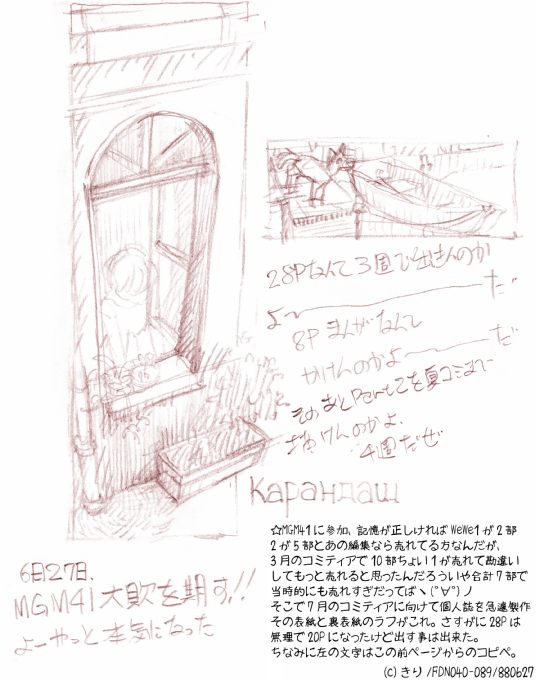 28Pなんて3週で出きんのか
よ〜だ
8Pまんがなんて
かけんのかよ〜だ
そのあとPart2を夏コミまで
4週だぜ
Карандаш
6月27日、
MGM41大敗を期す!!
よーやっと本気になった
☆MGM41に参加、記憶が正しければWeWe1が2部
2が5部とあの編集なら売れてる方なんだが、
3月のコミティアで10部ちょい1が売れて勘違い
してもっと売れると思ったんだろういや合計7部で
当時的にも売れすぎだってばヽ(ﾟ∀ﾟ)ノ
そこで7月のコミティアに向けて個人誌を急遽製作
その表紙と裏表紙のラフがこれ。さすがに28Pは
無理で20Pになったけど出す事は出来た。
ちなみに左の文字はこの前ページからのコピペ。
(c)きり/FDN040-089/880627